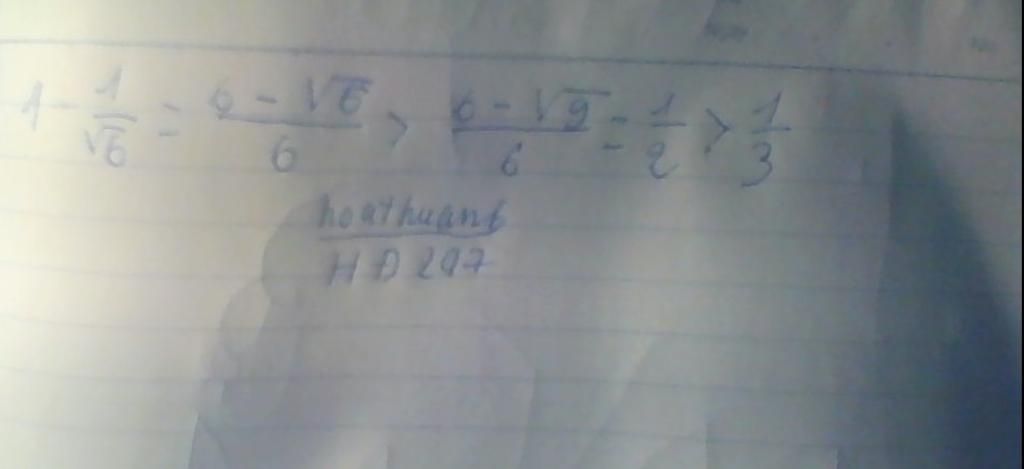 1 - 1/√6 = 6 - √6/6 > 6 - √9/6 = 1/2 > 1/3
hoathuan6
HD297